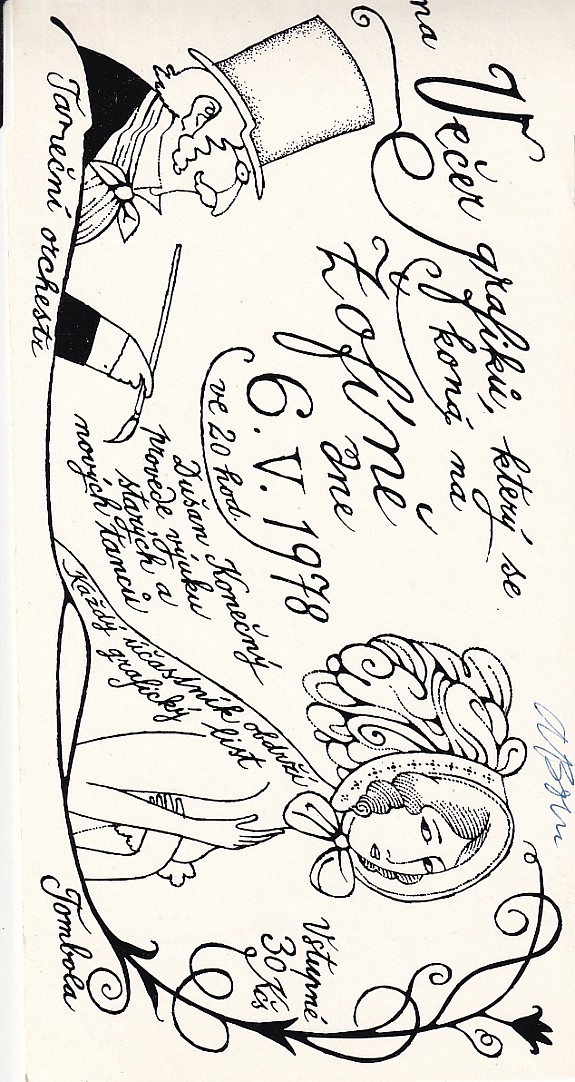 na
Večer grafiků, který se
koná na
Žofíně
dne
6. V. 1978
ve 20 hod.
Dušan Konečný
provede výuku
starých a
nových tanců
Taneční orchestr
Každý účastník obdrží
grafický list
Vstupné
30 Kčs
Tombola